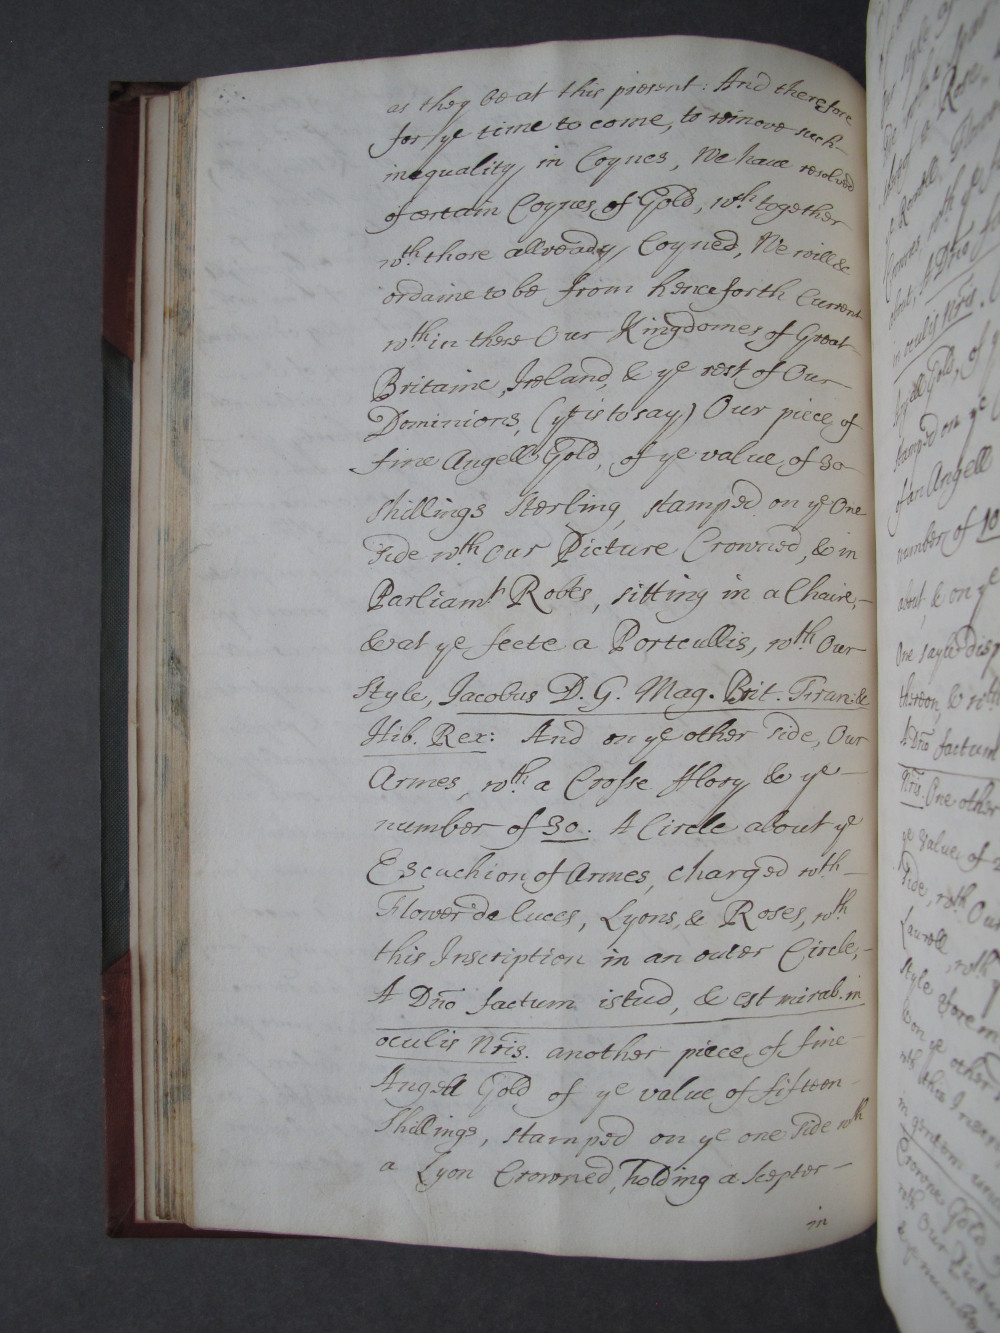 as they be at this present: And therefore
for ye time to come, to remove such
inequality in Coynes, We have resolved
of certain Coynes of Gold, wth. together
wth. those allready Coyned, We will &
ordaine to be from henceforth Current
wthin these Our Kingdomes of Great
Britaine, Ireland, & ye rest of Our
Dominions, (yt is to say) Our piece of
fine Angell Gold, of ye value of 30
shillings Sterling, stamped on ye One
side wth. Our Picture Crowned, & in
Parliamt Robes, sitting in a Chaire,
& at ye feete a Portcullis, wth. Our
Style, Jacobus D. G. Mag. Brit. Fran: &
Hib. Rex: And on ye other side, Our
Armes, wth. a Crosse Flory & ye
number of 30. A Circle about ye
Escuchion of Armes, charged wth
Flower de luces, Lyons, & Roses, wth
this Inscription in an outer Circle,
A Dno factum istud, & est mirab. in
oculis Nris. another piece of fine
Angell Gold of ye value of fifteen
Shillings, stamped on ye one side wth
a Lyon Crowned, holding a Scepter
in
in oculis Nris.
stamped on ye
of an Angell
number of 10
about, & on ye
thereon, & wth
A Dno factum
Nris. One other
ye value of
side, wth. Our
Laurell, wth
& on ye other